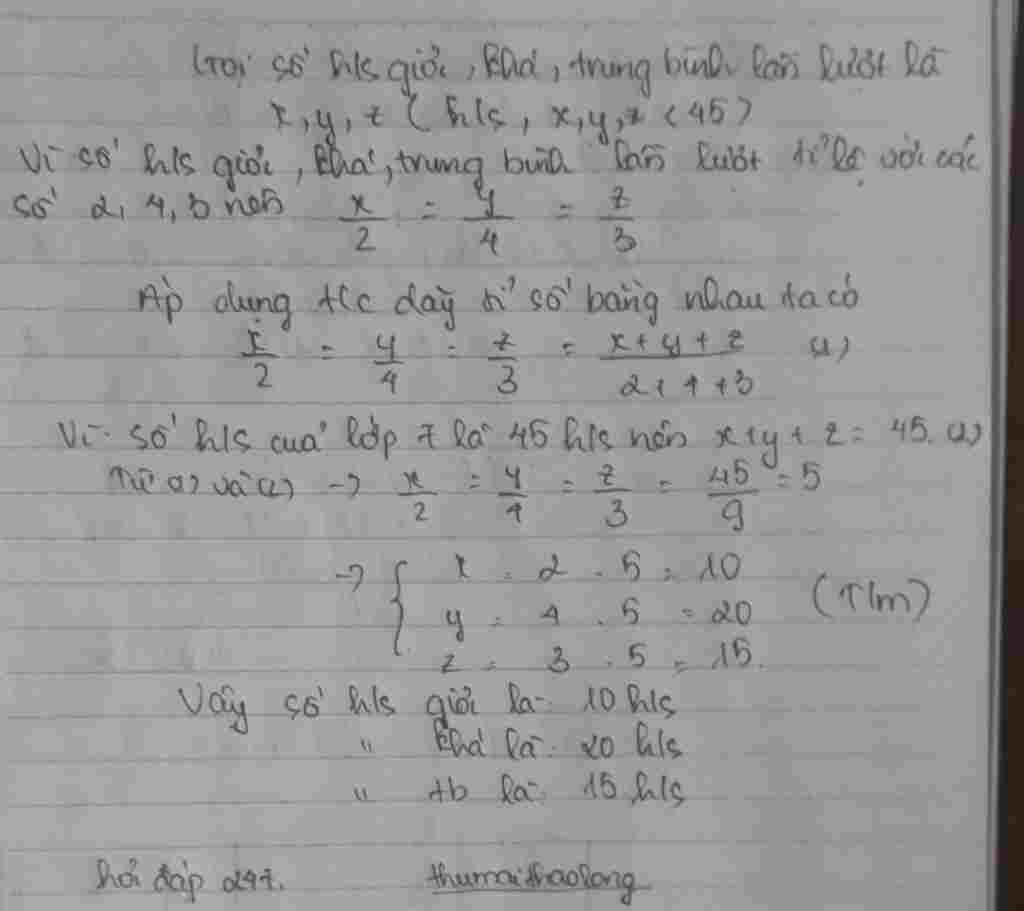 Gọi số h/s giỏi, khá, trung bình lần lượt là
x, y, z (h/s, x, y, z < 45)
Vì số h/s giỏi, khá, trung bình lần lượt tỉ lệ với các
số 2, 4, 3 nên x/2 = y/4 = z/3
Áp dụng t/c dãy tỉ số bằng nhau ta có
x/2 = y/4 = z/3 = (x+y+z)/(2+4+3) (1)
Vì số h/s của lớp 7 là 45 h/s nên x+y+z = 45. (2)
Từ (1) và (2) → x/2 = y/4 = z/3 = 45/9 = 5
→ { x = 2 . 5 = 10
y = 4 . 5 = 20 (T/m)
z = 3 . 5 = 15.
Vậy số h/s giỏi là: 10 h/s
" khá là: 20 h/s
" tb là: 15 h/s
hỏi đáp 247. thumaithaolong